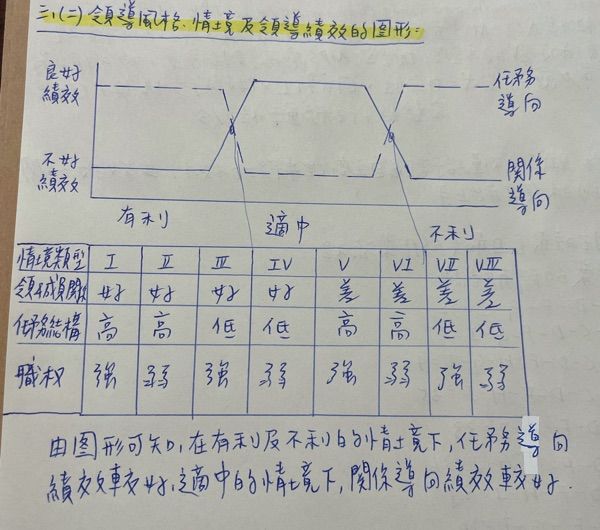 三、(二) 領導風格、情境及領導績效的圖形:
良好
績效
任務
導向
不好
績效
關係
導向
有利 適中 不利
情境類型 I II III IV V VI VII VIII
領/成員關係 好 好 好 好 差 差 差 差
任務結構 高 高 低 低 高 高 低 低
職权 強 弱 強 弱 強 弱 強 弱
由圖形可知,在有利及不利的情境下,任務導向
績效較好,適中的情境下,關係導向績效較好.